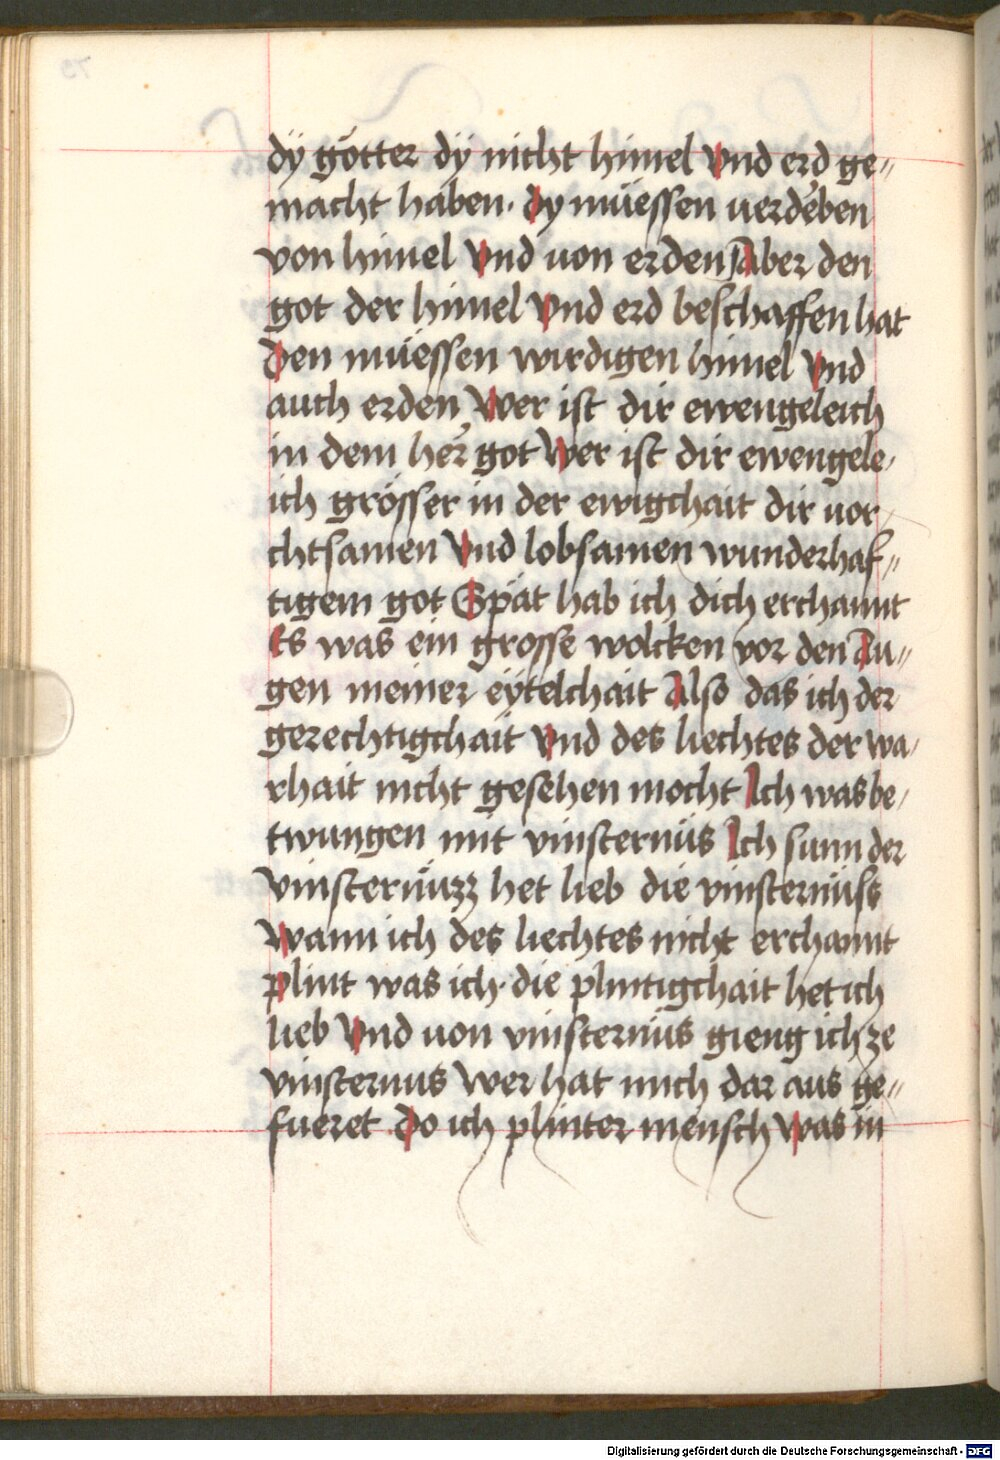 dÿ götter dÿ nicht himel vnd erd ge„
macht haben. dy müessen verdeben
von himel vnd von erden Aber den
got der himel vnd erd beschaffen hat
den müessen wirdigen himel vnd
auch erden Wer ist dir ewengeleich
in dem her got Wer ist dir ewengele,
ich grösser in der ewigchait dir vor,
chtsamen vnd lobsamen wunderhaf„
tigem got Spät hab ich dich erchannt
Es was ein grosse wolcken vor den Au„
gen meiner eÿtelchait Also das ich der
gerechtigchait vnd des liechtes der wa,
rhait nicht gesehen mocht Ich was be,
twungen mit vinsternüs Ich sunn der
vinsternüzz het lieb die vinsternüss
Wann ich des liechtes nicht erchannt
plint was ich. die plintigchait het ich
lieb Vnd von vinsternüs gieng ich ze
vinsternus Wer hat mich dar aus ge„
fueret Do ich plinter mensch was in
Digitalisierung gefördert durch die Deutsche Forschungsgemeinschaft - DFG